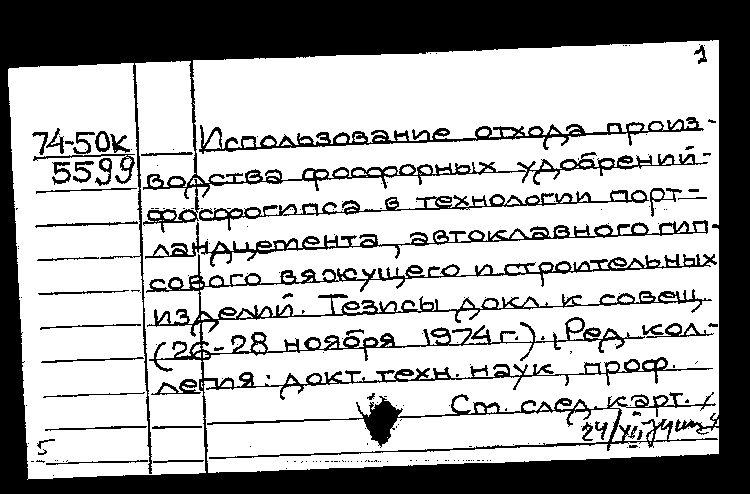 1
74-50к Использование отхода произ-
5599 водства фосфорных удобрений-
фосфогипса в технологии порт-
ландцемента, автоклавного гип-
сового вяжущего и строительных
изделий. Тезисы докл. к совещ.
(26-28 ноября 1974 г.). Ред. кол.-
легия: докт. техн. наук, проф.
См. след. карт.
5